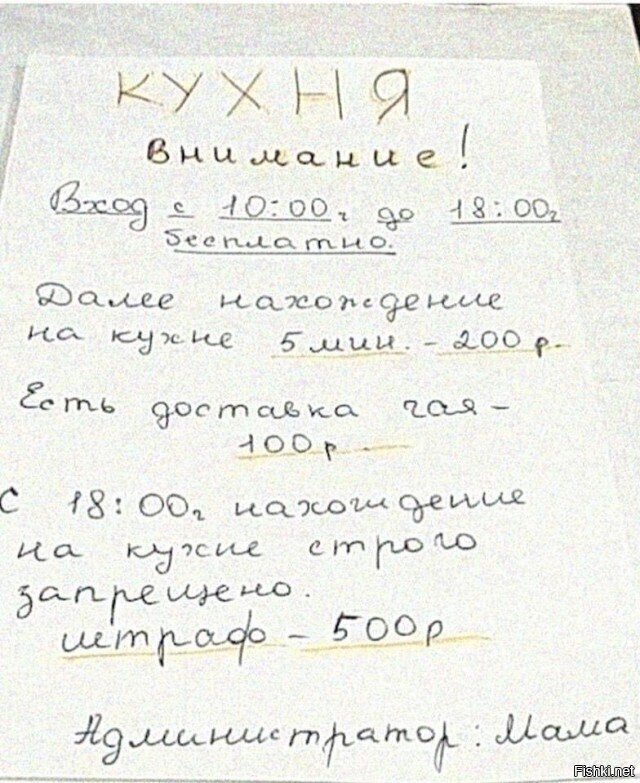 КУХНЯ
внимание!
Вход с 10:00ч до 18:00ч
бесплатно.
Далее нахождение
на кухне 5 мин. - 200 р.
Есть доставка чая -
100 р.
С 18:00ч нахождение
на кухне строго
запрещено.
штраф - 500 р
Администратор: Мама
Fishki.net